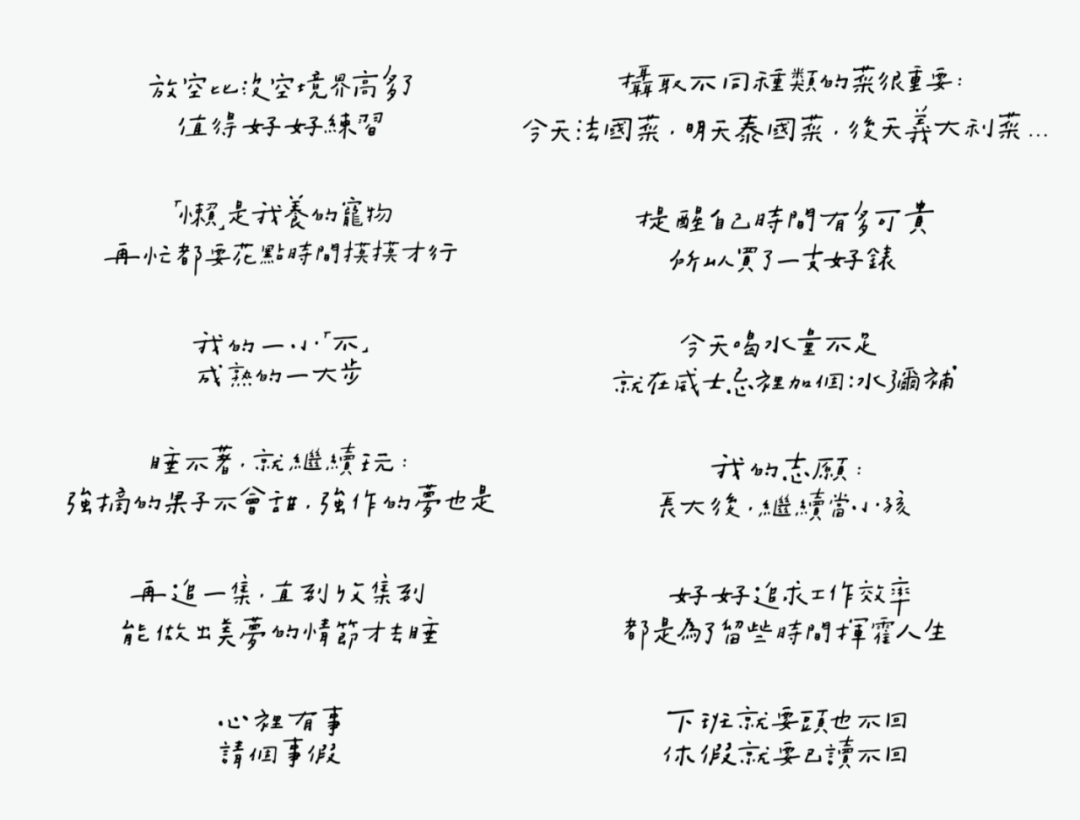 放空比沒空境界高多了
值得好好練習
「懶」是我養的寵物
再忙都要花點時間摸摸才行
我的一小「不」
成熟的一大步
睡不著，就繼續玩：
強摘的果子不會甜，強作的夢也是
再追一集，直到收集到
能做出美夢的情節才去睡
心裡有事
請個事假
攝取不同種類的菜很重要：
今天法國菜，明天泰國菜，後天義大利菜...
提醒自己時間有多可貴
所以買了一支好錶
今天喝水量不足
就在威士忌裡加個冰彌補
我的志願：
長大後，繼續當小孩
好好追求工作效率
都是為了留些時間揮霍人生
下班就要頭也不回
休假就要已讀不回